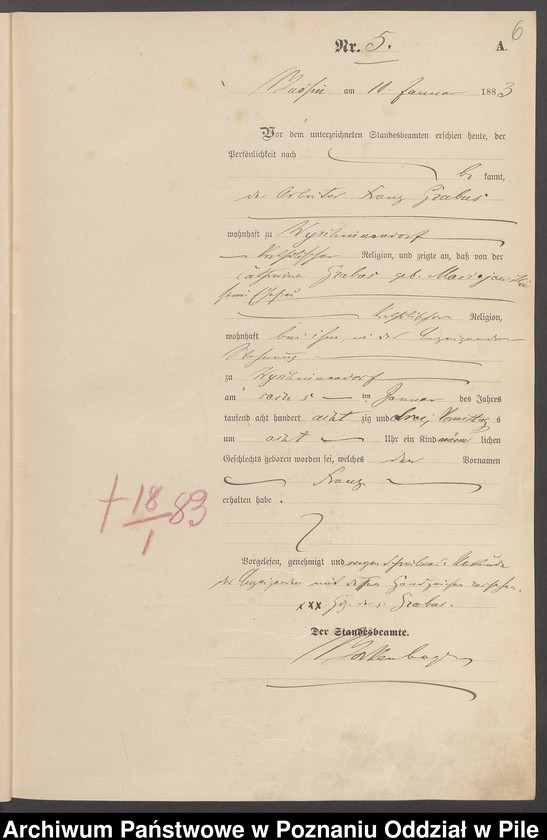 6
Nr. 5.
A.
am 10. Januar 1883
Vor dem unterzeichneten Standesbeamten erschien heute, der
Persönlichkeit nach
be kannt,
der Arbeiter Franz Grabas
wohnhaft zu
katholischer Religion, und zeigte an, daß von der
Catharina Grabas geb.
seiner Ehefrau
katholischer Religion,
wohnhaft bei ihm, in der
Wohnung
zu
am sechs ten Januar des Jahres
tausend acht hundert acht zig und drei, Vormittag s
um acht Uhr ein Kind männ lichen
Geschlechts geboren worden sei, welches den Vornamen
Franz
erhalten habe .
† 18/1 83
Vorgelesen, genehmigt und wegen Schreibens Unkunde
des Anzeigenden mit dessen Handzeichen versehen.
xxx Franz Grabas.
Der Standesbeamte.